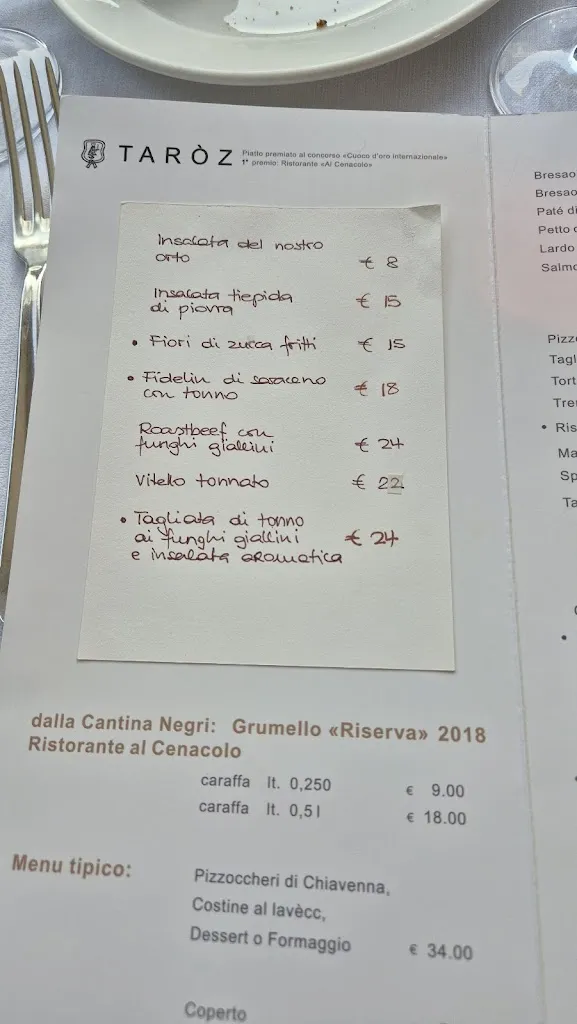 TARÒZ
Piatto premiato al concorso «Cuoco d'oro internazionale»
1° premio: Ristorante «Al Cenacolo»
Insalata del nostro
orto € 8
Insalata tiepida
di piovra € 15
• Fiori di zucca fritti € 15
• Fidelin di saraceno
con tonno € 18
Roastbeef con
funghi giallini € 24
Vitello tonnato € 22
• Tagliata di tonno
ai funghi giallini € 24
e insalata aromatica
dalla Cantina Negri: Grumello «Riserva» 2018
Ristorante al Cenacolo
caraffa lt. 0,250 € 9.00
caraffa lt. 0,5 l € 18.00
Menu tipico: Pizzoccheri di Chiavenna,
Costine al lavècc,
Dessert o Formaggio € 34.00
Coperto
Bresao
Bresao
Paté di
Petto
Lardo
Salmo
Pizz
Tagl
Tort
Tre
• Ris
Ma
Sp
Ta